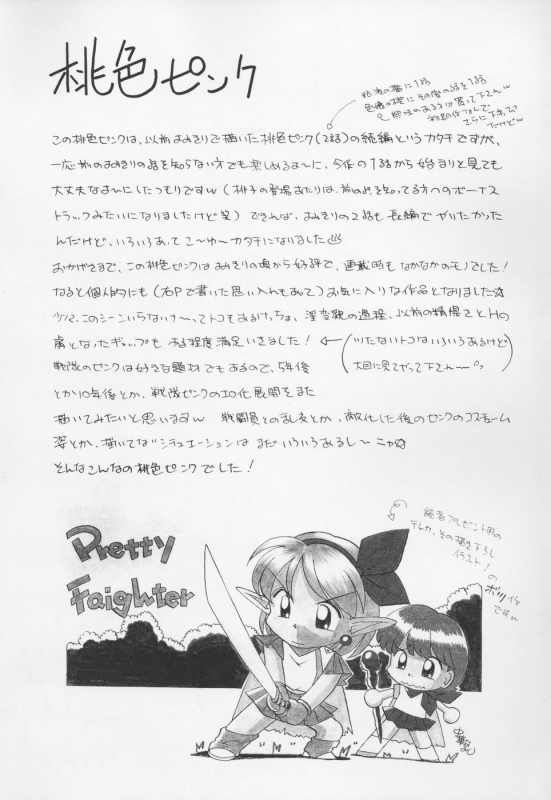 桃色ピンク
この桃色ピンクは、以前よみきりで描いた桃色ピンク(2話)の続編というカタチですが、
一応前のよみきりの話を知らない方でも楽しめるよーに、今作の1話から始まりと見ても
大丈夫なよーにしたつもりですw(桃子の登場あたりは、前のみを知ってる方へのボーナス
トラックみたいになりましたけど笑)できれば、よみきりの2話も長編でやりたかった
んだけど、いろいろあってこーゆーカタチになりました
おかげさまで、この桃色ピンクはよみきりの頃から好評で、連載時もなかなかのモノでした!
なると個人的にも(右Pで書いた思い入れもあって)お気に入りな作品となりました☆
少々、このシーンいらないナーってトコもあるけっちょ、淫変貌の過程、以前の精悍さとHの
虜となったギャップもある程度満足いきました!
(ツたないトコはいろいろあるけど
大目に見てやって下さいー)
戦隊のピンクは好きな題材でもあるので、5年後
とか10年後とか、戦隊ピンクのエロ化展開をまた
描いてみたいと思いますw 戦闘員との乱交とか、敵化した後のピンクのコスチューム
姿とか、描いてないシチュエーションはまだいろいろあるしーニャ☆
そんなこんなの桃色ピンクでした!
Pretty
Faighter
読者プレゼント用の
テレカ、その描き下ろし
イラスト!
の
ボツ作
ですw